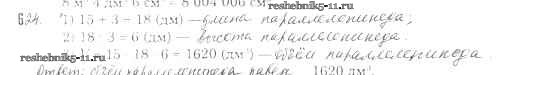 8 м³ 4 дм³ 6 см³ = 8 004 006 см³
reshebnik5-11.ru
624. 1) 15 + 3 = 18 (дм) — длина параллелепипеда;
2) 18 : 3 = 6 (дм) — высота параллелепипеда.
= 15 · 18 · 6 = 1620 (дм³) — объём параллелепипеда.
Ответ: объём параллелепипеда равен 1620 дм³.
reshebnik5-11.ru